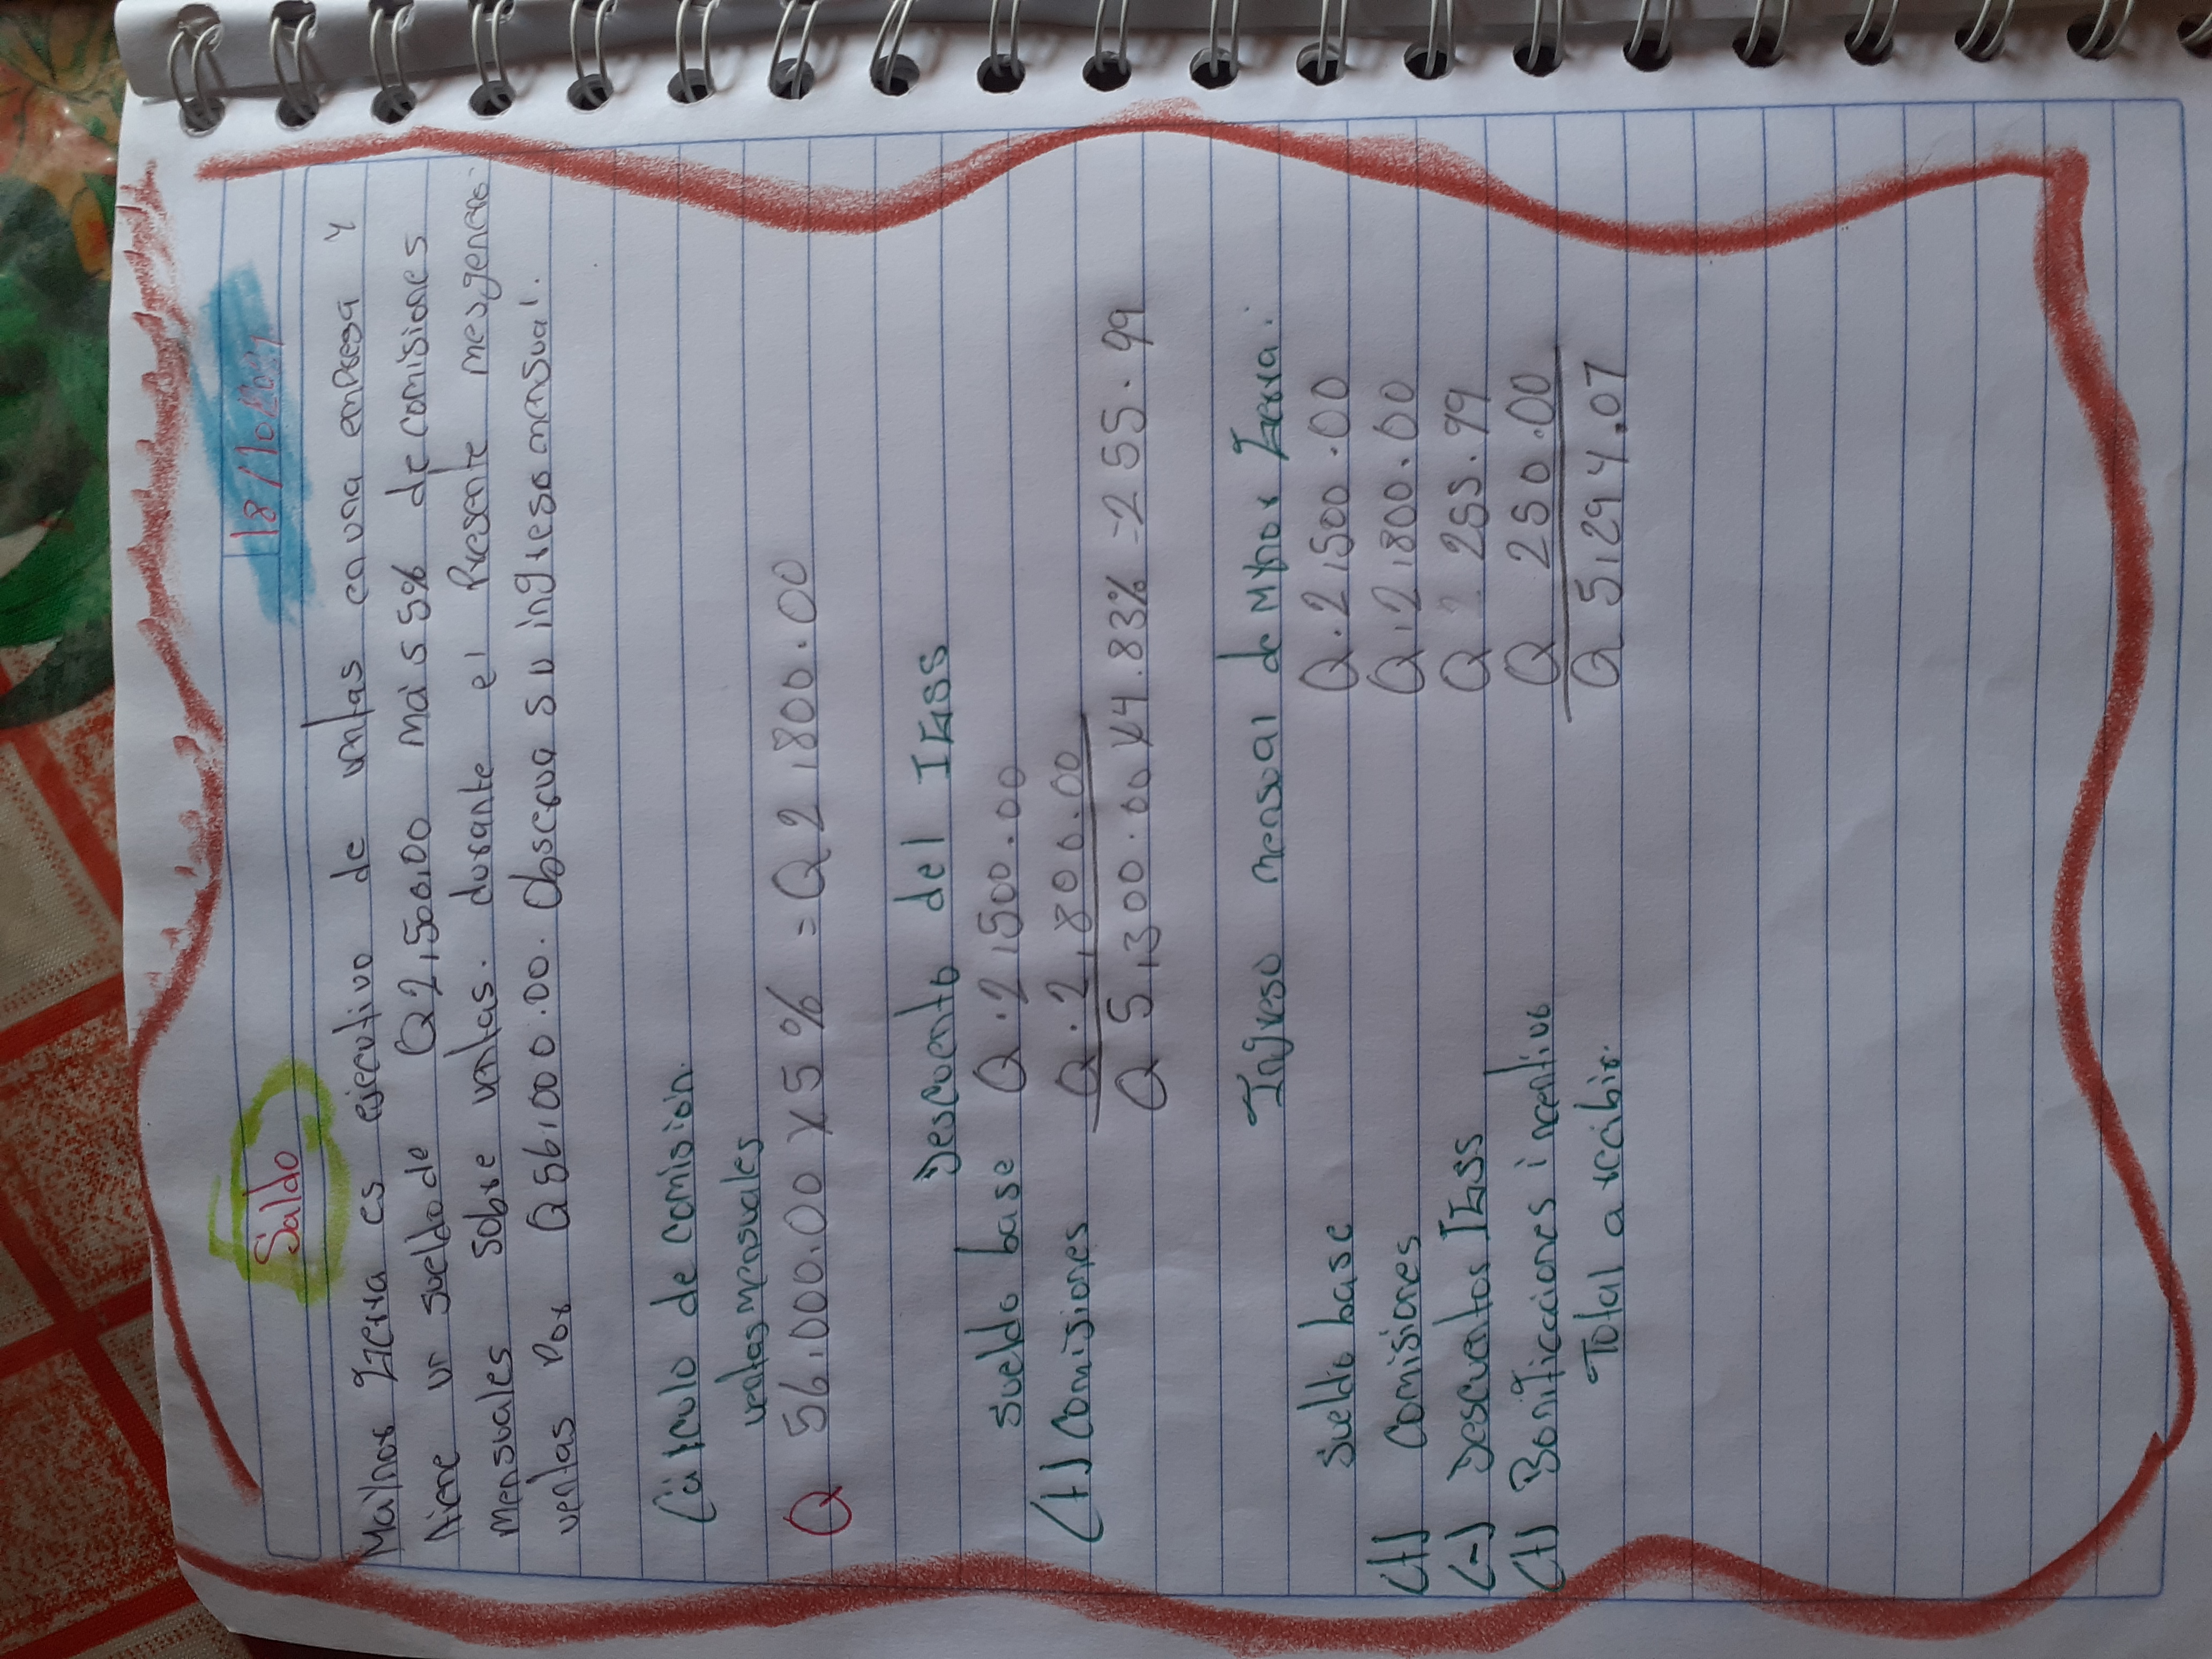 Saldo 18/10/2021
Mainor Zerra es ejecutivo de ventas en una empresa y
tiene un sueldo de Q2,500.00 mais 5% de comisiones
mensuales sobre ventas. durante el Presente mes genero
ventas Por Q56,000.00. Observa su ingreso mensual.
Cálculo de comisión.
ventas mensuales
Q 56,000.00 x 5% = Q2,800.00
Descuento del IGSS
sueldo base Q.2,500.00
(+) comisiones Q.2,800.00
Q 5,300.00 x 4.83% = 255.99
Ingreso mensual de Mynor Zerra:
Sueldo base Q.2,500.00
(+) comisiones Q.2,800.00
(-) Descuentos IGSS Q 255.99
(+) Bonificaciones incentivo Q 250.00
Total a recibir. Q 5,294.07